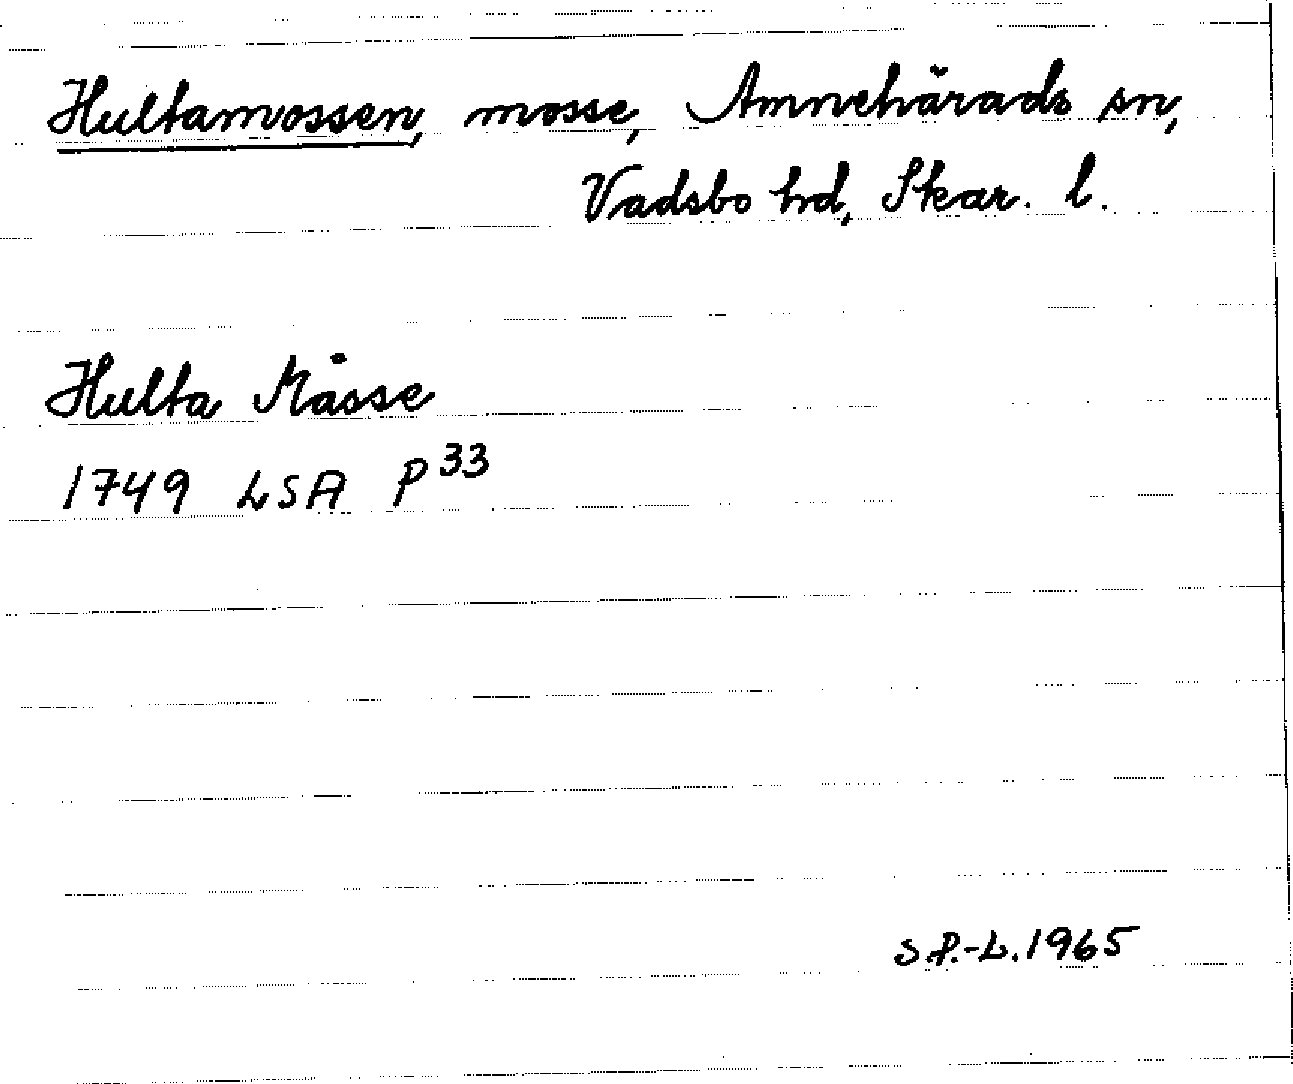 Hultamossen, mosse, Amnehärads sn,
Vadsbo hd, Skar. l.
Hulta Måsse
1749 LSA P 33
S.P.-L. 1965